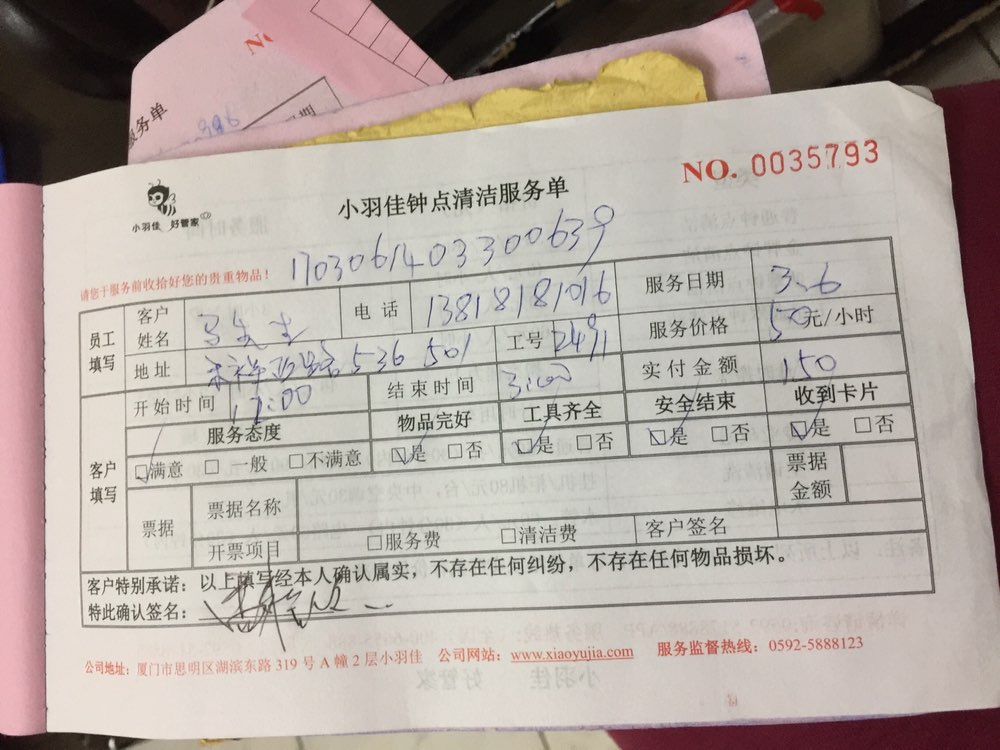 NO.
务单
期
396
NO. 0035793
小羽佳 好管家
小羽佳钟点清洁服务单
请您于服务前收拾好您的贵重物品！
170306140330063号
员工填写
客户姓名
先生
电 话
13818181016
服务日期
3.6
地址
536 501
工号
2491
服务价格
50元/小时
开始时间
12:00
结束时间
3:00
实付金额
150
客户填写
服务态度
物品完好
工具齐全
安全结束
收到卡片
☑满意 □ 一般 □不满意
☑是 □否
☑是 □否
☑是 □否
☑是 □否
票据
票据名称
票据金额
开票项目
□服务费
□清洁费
客户签名
客户特别承诺：以上填写经本人确认属实，不存在任何纠纷，不存在任何物品损坏。
特此确认签名：
公司地址：厦门市思明区湖滨东路 319 号 A 幢 2 层小羽佳 公司网站：www.xiaoyujia.com 服务监督热线：0592-5888123